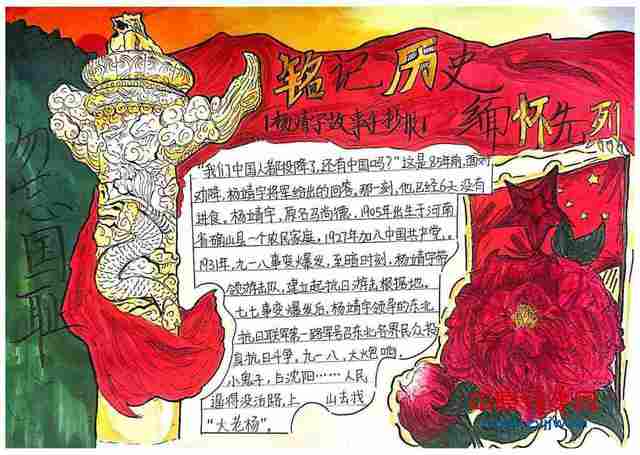 铭记历史
缅怀先列
【杨靖宇故事手抄报】
勿忘国耻
"我们中国人都投降了，还有中国吗？"这是85年前，面对
劝降，杨靖宇将军给出的回答。那一刻，他已经6天没有
进食。杨靖宇，原名马尚德，1905年出生于河南
省确山县一个农民家庭。1927年加入中国共产党。
1931年，九一八事变爆发，至暗时刻，杨靖宇带
领游击队，建立起抗日游击根据地。
七七事变爆发后，杨靖宇领导的东北
抗日联军第一路军号召东北各界民众投
身抗日斗争，九一八，大炮响，
小鬼子，占沈阳……人民
逼得没活路，上 山去找
"大老杨"。